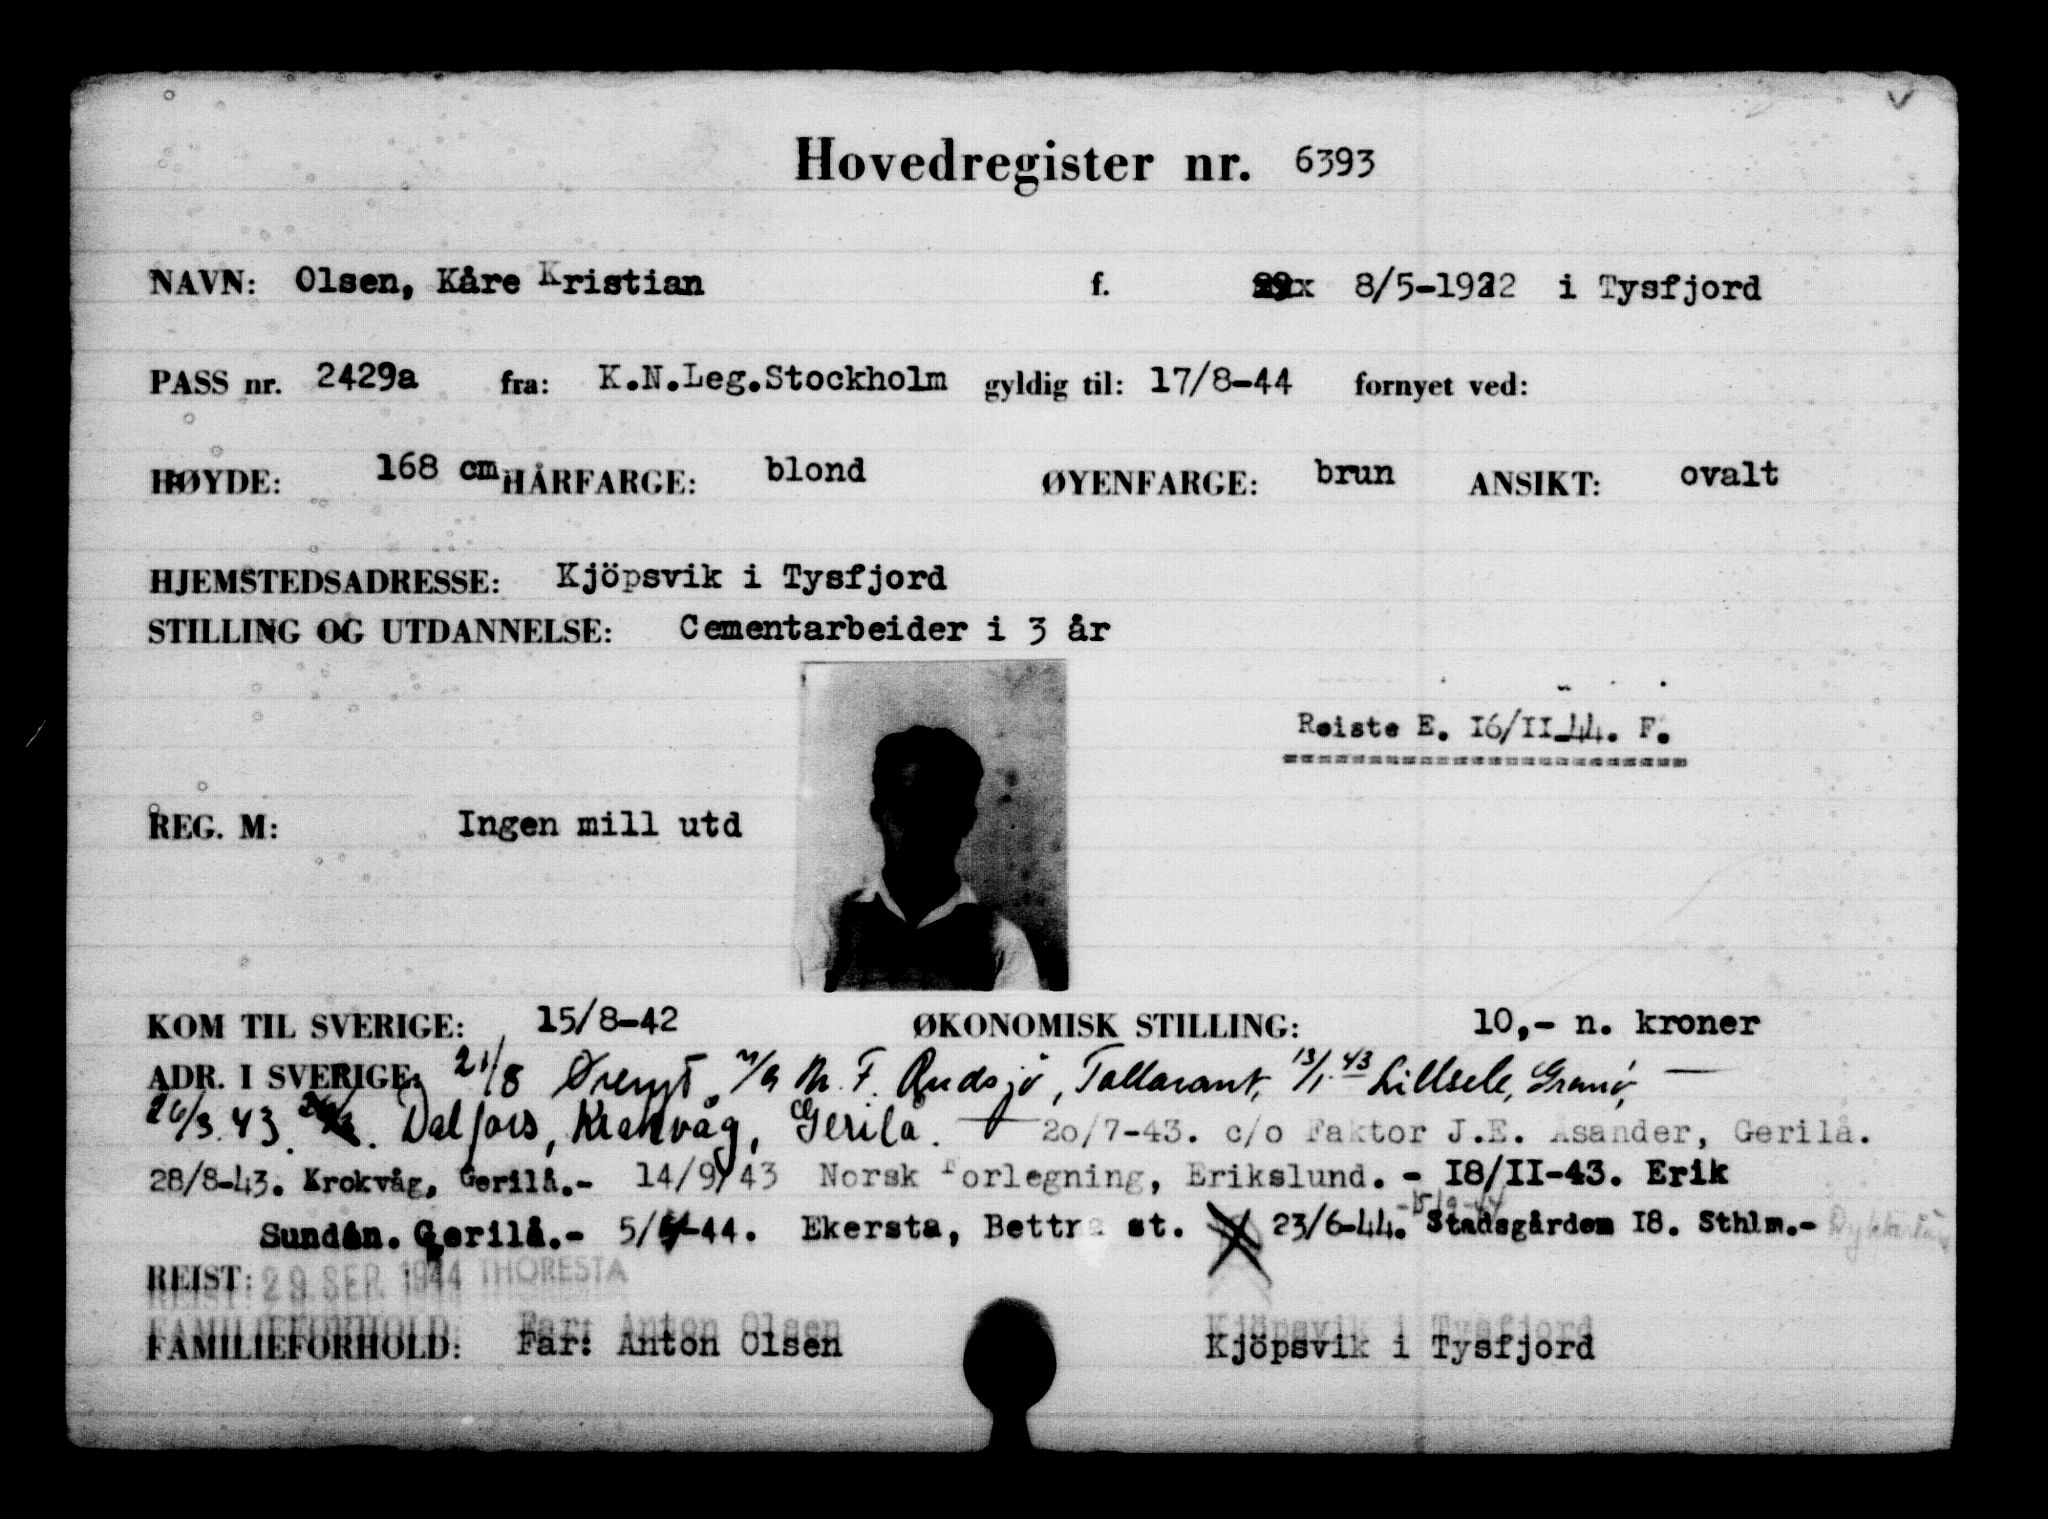 Hovedregister nr. 6393
NAVN: Olsen, Kåre Kristian f. 8/5-1922 i Tysfjord
PASS nr. 2429a fra: K.N.Leg.Stockholm gyldig til: 17/8-44 fornyet ved:
HØYDE: 168 cm HÅRFARGE: blond ØYENFARGE: brun ANSIKT: ovalt
HJEMSTEDSADRESSE: Kjöpsvik i Tysfjord
STILLING OG UTDANNELSE: Cementarbeider i 3 år
Reiste E. I6/II-44. F.
REG. M: Ingen mill utd
KOM TIL SVERIGE: 15/8-42 ØKONOMISK STILLING: 10,- n. kroner
ADR. I SVERIGE: 21/8 Öreryd. N. F. Rudsjö, 13/1 43 Lillsele, Granö,
26/3.43. Dalfors, Krokvåg, Gerilå. 2o/7-43. c/o Faktor J.E. Åsander, Gerilå.
28/8-43. Krokvåg, Gerilå.- 14/9-43 Norsk Forlegning, Erikslund. - I8/II-43. Erik
Sundén. Gerilå.- 5/4-44. Ekersta, Bettna st. 23/6-44. -15/9-44 Stadsgården I8. Sthlm.-
REIST: 29 SEP. 1944 THORESTA
FAMILIEFORHOLD: Far: Anton Olsen Kjöpsvik i Tysfjord